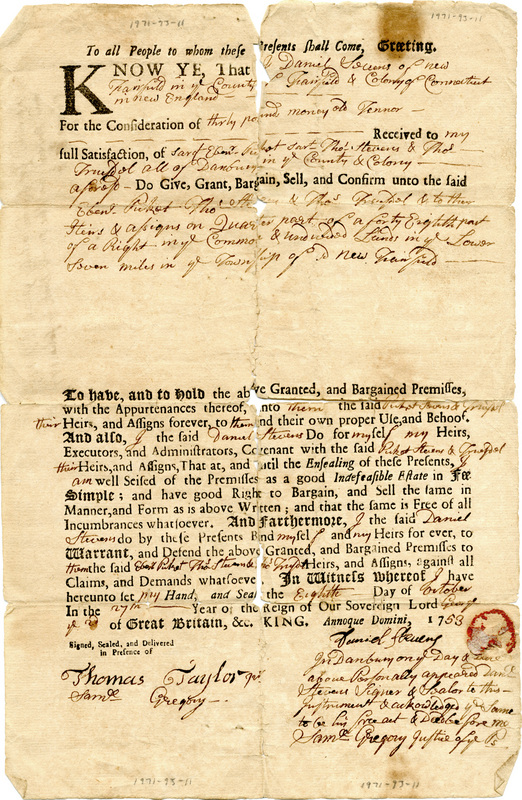 1971-93-11 1971-93-11
To all People to whom these Presents shall Come, Greeting.
KNOW YE, That I Daniel Stevens of new
Fairfield in ye County of Fairfield & Colony of Connecticut
in new England
For the Consideration of thirty pound money old Tennor
Received to my
full Satisfaction, of Ebenr Picket Thos Stevens & Thos
Truesdel all of Danbury in ye County & Colony
aforesd Do Give, Grant, Bargain, Sell, and Confirm unto the said
Ebenr Picket Thos Stevens & Thos Trusdel & to their
Heirs & assigns on Quarter part of a forty Eighth part
of a Right in ye Common & undivided Lands in ye Lower
Seven miles in ye Township of sd new Fairfield
To have, and to hold the above Granted, and Bargained Premisses,
with the Appurtenances thereof, unto them the said Picket Stevens & Trusdel
their Heirs, and Assigns forever, to them and their own proper Use, and Behoof.
And also, I the said Daniel Stevens Do for myself my Heirs,
Executors, and Administrators, Covenant with the said Picket Stevens & Trusdel
their Heirs, and Assigns, That at, and until the Ensealing of these Presents, I
am well Seised of the Premisses as a good Indefeasible Estate in Fee
Simple; and have good Right to Bargain, and Sell the same in
Manner, and Form as is above Written; and that the same is Free of all
Incumbrances whatsoever. And Farthermore, I the said Daniel
Stevens do by these Presents Bind myself and my Heirs for ever, to
Warrant, and Defend the above Granted, and Bargained Premisses to
them the said Ebenr Picket Thos Stevens & Thos Trusdel Heirs, and Assigns, against all
Claims, and Demands whatsoever. In Witness whereof I have
hereunto set my Hand, and Seal the Eighth Day of October
In the 27th Year of the Reign of Our Sovereign Lord George
ye 2d of Great Britain, &c. KING, Annoque Domini, 1753
Signed, Sealed, and Delivered
in Presence of
Thomas Taylor
Samll Gregory
Daniel Stevens
In Danbury on ye Day & Date
above Personally appeared Danll
Stevens Signer & Sealor to this
Instrument & acknowledged ye Same
to be his free act & Deed before me
Samll Gregory Justice of ye Ps
1971-93-11 1971-93-11